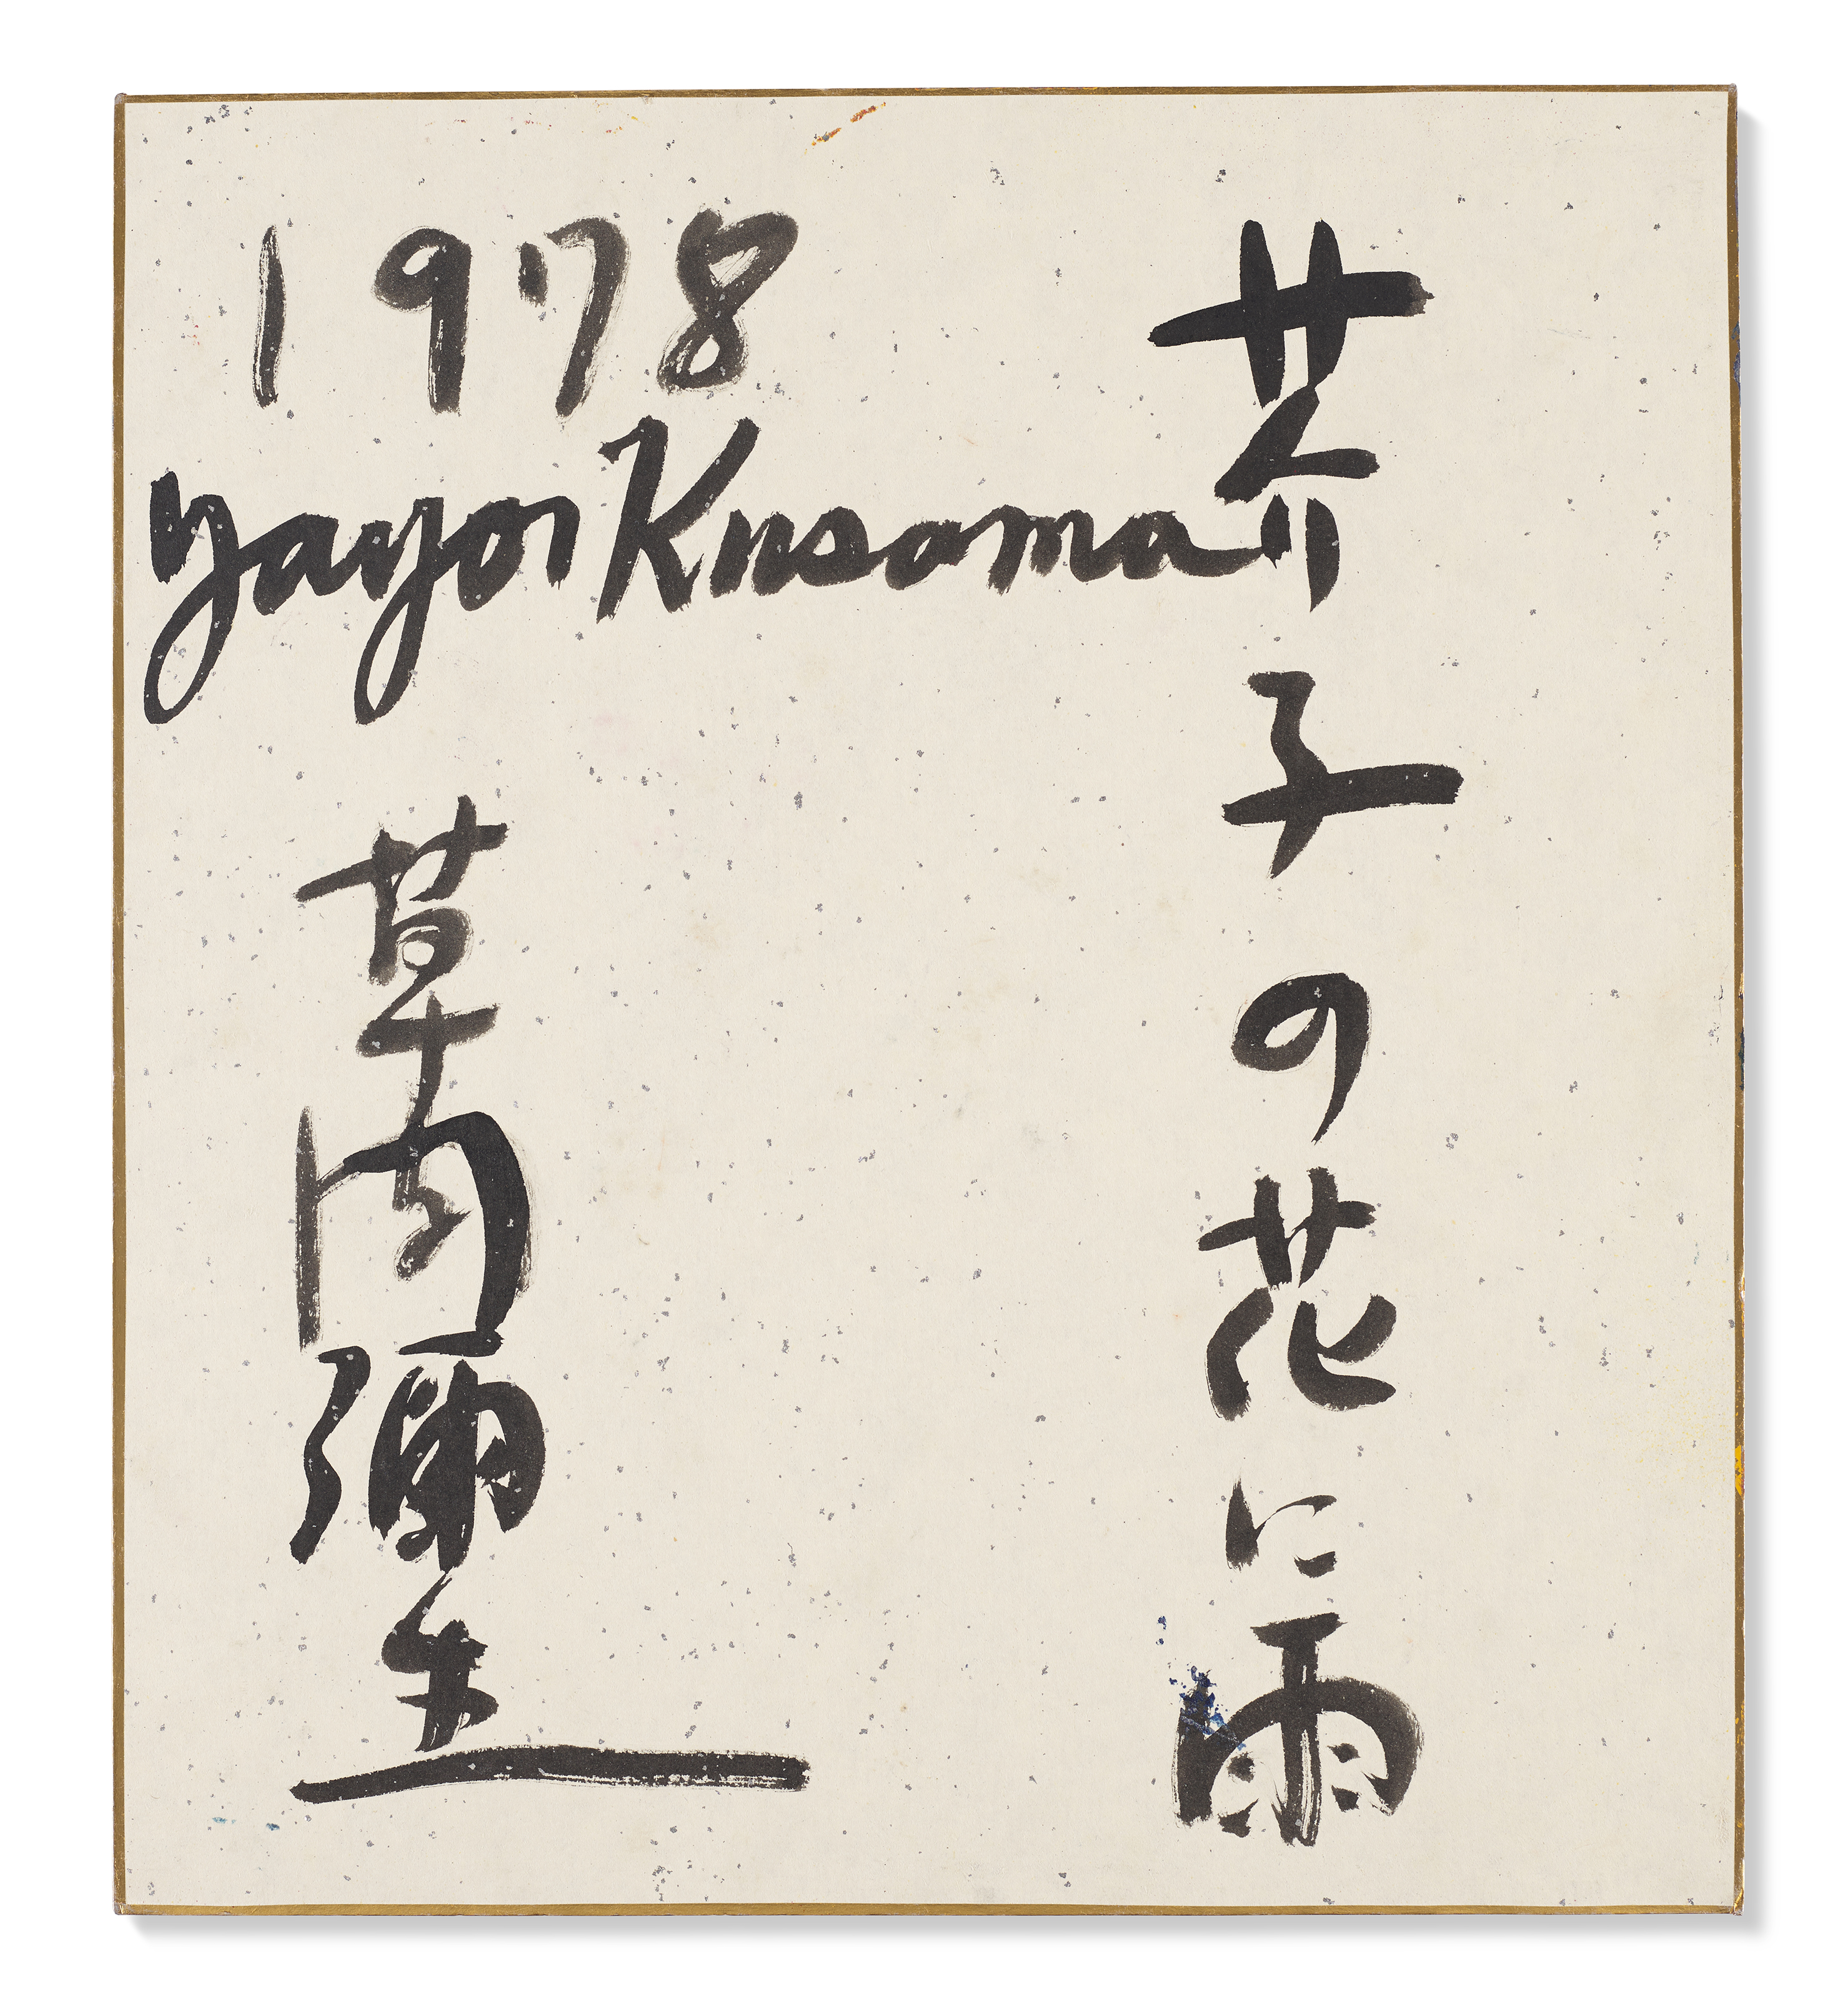 芥子の花に雨
1978
Yayoi Kusama
草間彌生